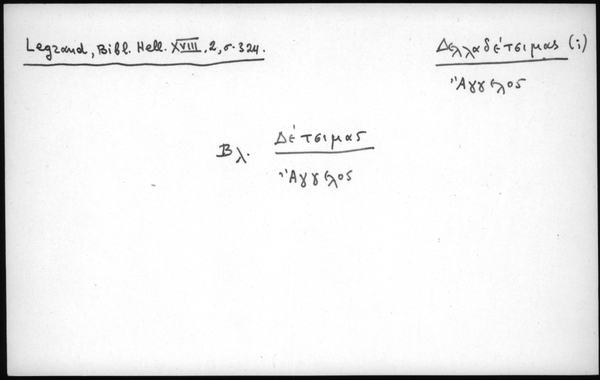 Legrand, Bibl. Hell. XVIII, 2, σ. 324.
Δελλαδέτσιμας (i)
Ἄγγελος
Βλ. Δέτσιμας
Ἄγγελος